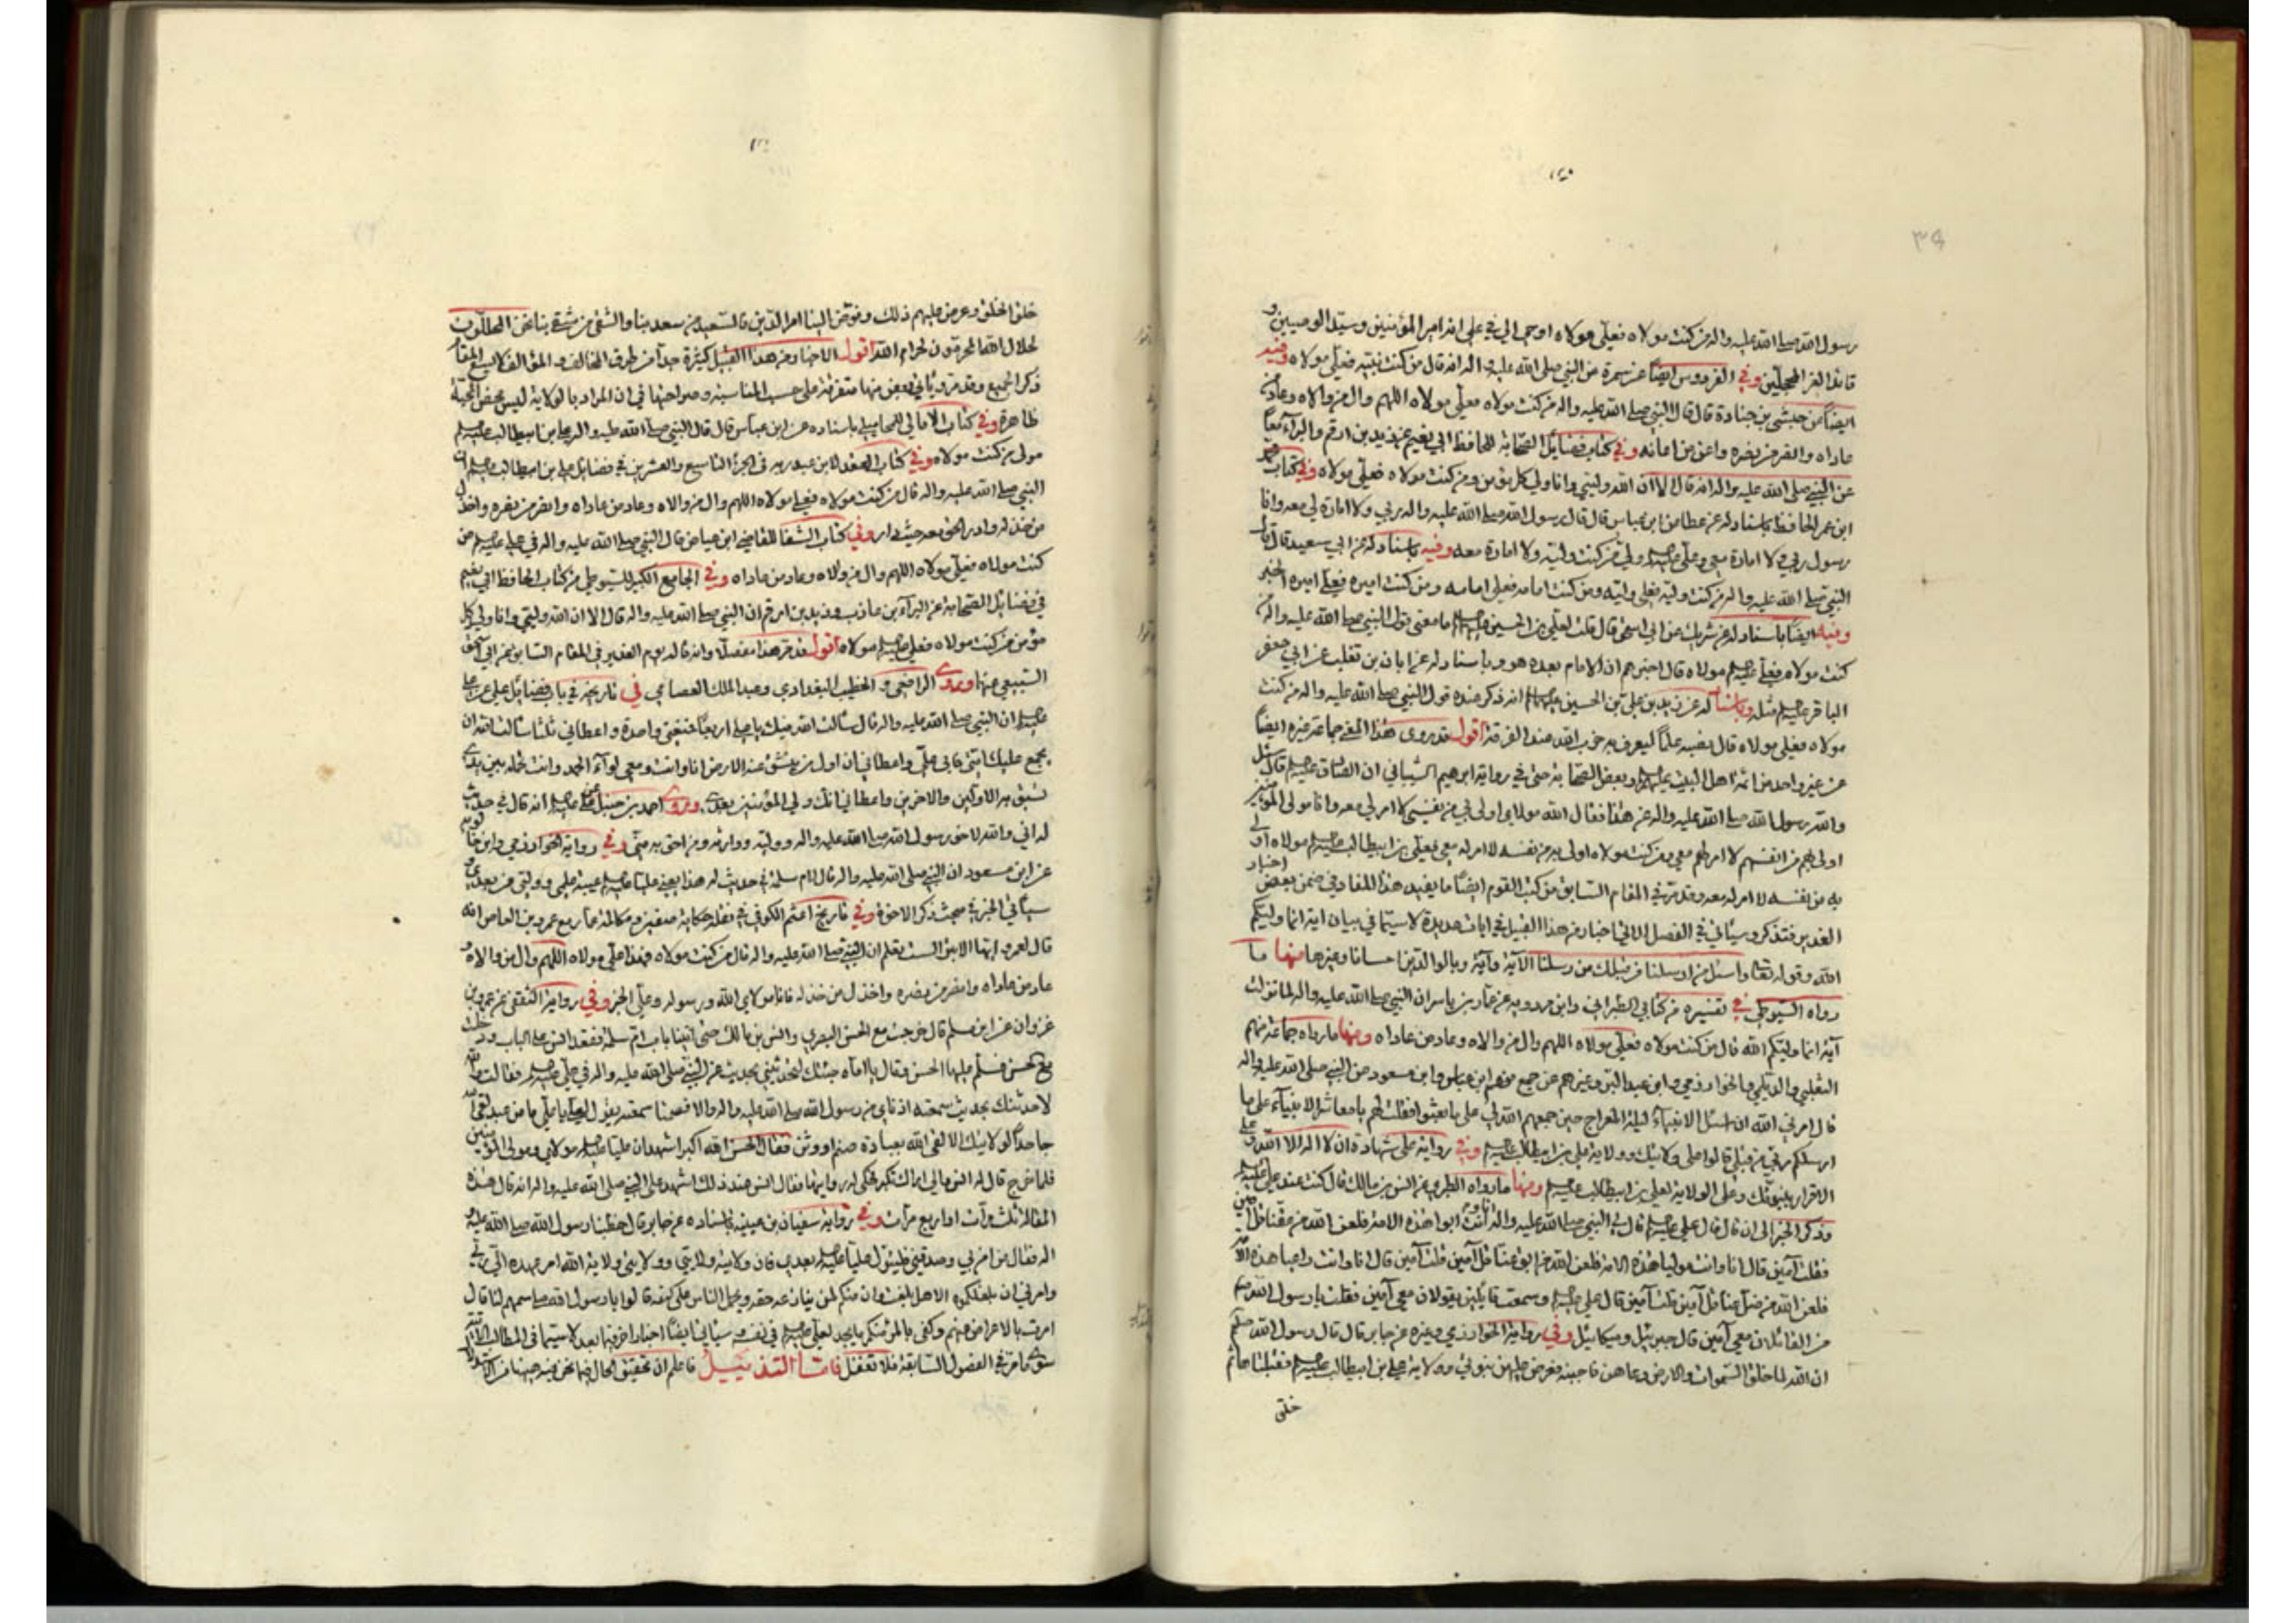 رسول الله صلى الله عليه واله من كنت مولاه فعلي مولاه اوحى الي في علي انه امير المؤمنين وسيد الوصيين و
قائد الغر المحجلين وفي الفردوس ايضا عن سمرة عن النبي صلى الله عليه واله انه قال من كنت نبيه فعلي مولاه وفيه
ايضا من حبشي بن جنادة قال قال النبي صلى الله عليه واله من كنت مولاه فعلي مولاه اللهم وال من والاه وعاد من
عاداه وانصر من نصره واعن من اعانه وفي كتاب فضائل الصحابة للحافظ ابي نعيم عن زيد بن ارقم والبراء معا
عن النبي صلى الله عليه واله انه قال الا ان الله وليي وانا ولي كل مؤمن ومن كنت مولاه فعلي مولاه وفي كتاب محمد
ابن عمر الحافظ باسناد له عن عطا عن ابن عباس قال قال رسول الله صلى الله عليه واله ربي ولا امارة لي معه وانا
رسول ربي ولا امارة معي وعلي ولي من كنت وليه ولا امارة معه وفيه باسناد له عن ابي سعيد قال قال
النبي صلى الله عليه واله من كنت وليه فعلي وليه ومن كنت امامه فعلي امامه ومن كنت اميره فعلي اميره الخبر
وفيه ايضا باسناد له عن شريك عن ابي اسحق قال قلت لعلي بن الحسين ما معنى قول النبي صلى الله عليه واله من
كنت مولاه فعلي مولاه قال اخبرهم ان الامام بعده هو وباسناد له عن ابان بن تغلب عن ابي جعفر
الباقر مثله وباسناد له عن زيد بن علي بن الحسين انه ذكر عنده قول النبي صلى الله عليه واله من كنت
مولاه فعلي مولاه قال نصبه علما ليعرف به حزب الله عند الفرقة اقول قد روى هذا المعنى جماعة غيره ايضا
عن غير واحد من ائمة اهل البيت وبعض الصحابة حتى في رواية ابرهيم الشيباني ان الصادق قال سئل
والله رسول الله صلى الله عليه واله عن هذا فقال الله مولاي اولى بي من نفسي لا امر لي معه وانا مولى المؤمنين
اولى بهم من انفسهم لا امر لهم معي ومن كنت مولاه اولى به من نفسه لا امر له معي فعلي بن ابيطالب مولاه اولى
به من نفسه لا امر له معه وقد مر في المقام السابق من كتب القوم ايضا ما يفيد هذا المفاد في ضمن بعض اخبار
الغدير فتذكر وسيأتي في الفصل الاتي اخبار من هذا القبيل في ايات عديدة لا سيما في بيان اية انما وليكم
الله وقوله تعالى واسئل من ارسلنا من قبلك من رسلنا الآية وآية وبالوالدين احسانا وغيرها منها ما
رواه السيوطي في تفسيره من كتابي الطبراني وابن مردويه عن عمار بن ياسر ان النبي صلى الله عليه واله لما نزلت
آية انما وليكم الله قال من كنت مولاه فعلي مولاه اللهم وال من والاه وعاد من عاداه ومنها ما رواه جماعة منهم
الثعلبي والديلمي والخوارزمي وابن عبد البر وغيرهم عن جمع منهم ابن عباس وابن مسعود عن النبي صلى الله عليه واله
قال امرني الله ان اسئل الانبياء ليلة المعراج حين جمعهم الله لي على ما بعثوا فقلت لهم يا معاشر الانبياء على ما
ارسلكم ربي من قبلي قالوا على ولايتك وولاية علي بن ابيطالب وفي رواية على شهادة ان لا اله الا الله وعلى
الاقرار بنبوتك وعلى الولاية لعلي بن ابيطالب ومنها ما رواه الطبري عن انس بن مالك قال كنت عند علي
وذكر الخبر الى ان قال قال علي قال لي النبي صلى الله عليه واله انا وانت ابوا هذه الامة فلعن الله من عقنا قل امين
فقلت آمين قال انا وانت موليا هذه الامة فلعن الله من ابق عنا قل آمين قلت آمين قال انا وانت راعيا هذه الامة
فلعن الله من ضل عنا قل آمين قلت آمين قال علي وسمعت قائلين يقولان معي آمين فقلت يا رسول الله
من القائلان معي آمين قال جبرئيل وميكائيل وفي رواية الخوارزمي وغيره عن جابر قال قال رسول الله
ان الله لما خلق السموات والارض دعاهن فاجبنه فعرض عليهن نبوتي وولاية علي بن ابيطالب فقبلتاهما ثم
خلق
خلق الخلق وعرض عليهم ذلك وفوض الينا امر الدين فالسعيد من سعد بنا والشقي من شقي بنا نحن المحللون
لحلال الله المحرمون لحرام الله اقول الاخبار من هذا القبيل كثيرة جدا من طرق المخالف والمؤالف لا يسع المقام
ذكر الجميع وقد مر ويأتي بعض منها متفرقة على حسب المناسبة وصراحتها في ان المراد بالولاية ليس محض المحبة
ظاهرة وفي كتاب الامالي للمحاملي باسناده عن ابن عباس قال قال النبي صلى الله عليه واله علي بن ابيطالب
مولى من كنت مولاه وفي كتاب العقد لابن عبد ربه في الجزء التاسع والعشرين في فضايل علي بن ابيطالب ان
النبي صلى الله عليه واله قال من كنت مولاه فعلي مولاه اللهم وال من والاه وعاد من عاداه وانصر من نصره واخذل
من خذله وادر الحق معه حيث دار وفي كتاب الشفا للقاضي ابن عياض قال النبي صلى الله عليه واله في علي من
كنت مولاه فعلي مولاه اللهم وال من والاه وعاد من عاداه وفي الجامع الكبير للسيوطي من كتاب الحافظ ابي نعيم
في فضايل الصحابة عن البراء بن عازب وزيد بن ارقم ان النبي صلى الله عليه واله قال الا ان الله وليي وانا ولي كل
مؤمن من كنت مولاه فعلي مولاه اقول قد مر هذا مفصلا وانه قاله يوم الغدير في المقام السابق عن ابي اسحق
السبيعي منها وروى الرافعي والخطيب البغدادي وعبد الملك العصامي في تاريخه في باب فضايل علي عن علي
ان النبي صلى الله عليه واله قال سألت الله فيك يا علي اربعا فمنعني واحدة واعطاني ثلثا سألت الله ان
يجمع عليك امتي فابى علي واعطاني ان اول من تنشق عنه الارض انا وانت ومعي لواء الحمد وانت تحمله بين يدي
تسبق به الاولين والاخرين واعطاني انك ولي المؤمنين بعدي وروى احمد بن حنبل عن علي انه قال في حديث
له اني والله لاخو رسول الله صلى الله عليه واله ووليه ووارثه ومن احق به مني وفي رواية الخوارزمي وابن خالويه
عن ابن مسعود ان النبي صلى الله عليه واله قال لام سلمة في حديث له هذا يعني عليا عيبة علمي ووليي من بعدي و
سيأتي الخبر في مبحث ذكر الاخوة وفي تاريخ اعثم الكوفي في نقله حكاية صفين ومكالمة عمار مع عمرو بن العاص انه
قال لعمرو ايها الابتر الست تعلم ان النبي صلى الله عليه واله قال من كنت مولاه فهذا علي مولاه اللهم وال من والاه و
عاد من عاداه وانصر من نصره واخذل من خذله فانا مولاي الله ورسوله وعلي الخبر وفي رواية الثقفي عن عمرو بن
غزوان عن ابن مسلم قال خرجت مع الحسن البصري وانس بن مالك حتى اتينا باب ام سلمة فقعد انس على الباب ودخلت
مع الحسن فسلم عليها الحسن وقال يا اماه جئتك لتحدثيني بحديث عن النبي صلى الله عليه واله في علي فقالت والله
لاحدثنك بحديث سمعته اذناي من رسول الله صلى الله عليه واله والا فصمتا سمعته يقول لعلي يا علي ما من عبد لقي الله
جاحدا لولايتك الا لقي الله بعبادة صنم او وثن فقال الحسن الله اكبر اشهد ان عليا مولاي ومولى المؤمنين
فلما خرج قال له انس مالي اراك تكبر فحكى له روايتها فقال انس عند ذلك اشهد على النبي صلى الله عليه واله انه قال هذه
المقالة ثلث مرات او اربع مرات وفي رواية سفيان بن عيينة باسناده عن جابر قال خطبنا رسول الله صلى الله عليه و
اله فقال من امن بي وصدقني فليتول عليا بعدي فان ولايته ولايتي وولايتي ولاية الله امر عهده الي ربي
وامرني ان ابلغكموه الا هل بلغت وان منكم لمن ينازعه حقه ويحمل الناس على كتفه قالوا يا رسول الله سمهم لنا قال
امرت بالاعراض عنهم وكفى بالمرء منكم ما يجد لعلي في نفسه وسيأتي ايضا اخبار اخر فيما بعد لا سيما في المطالب الاتية
سوى ما مر في الفصول السابقة فلا تغفل فاما التذييل فاعلم ان تحقيق الحال فيما نحن فيه